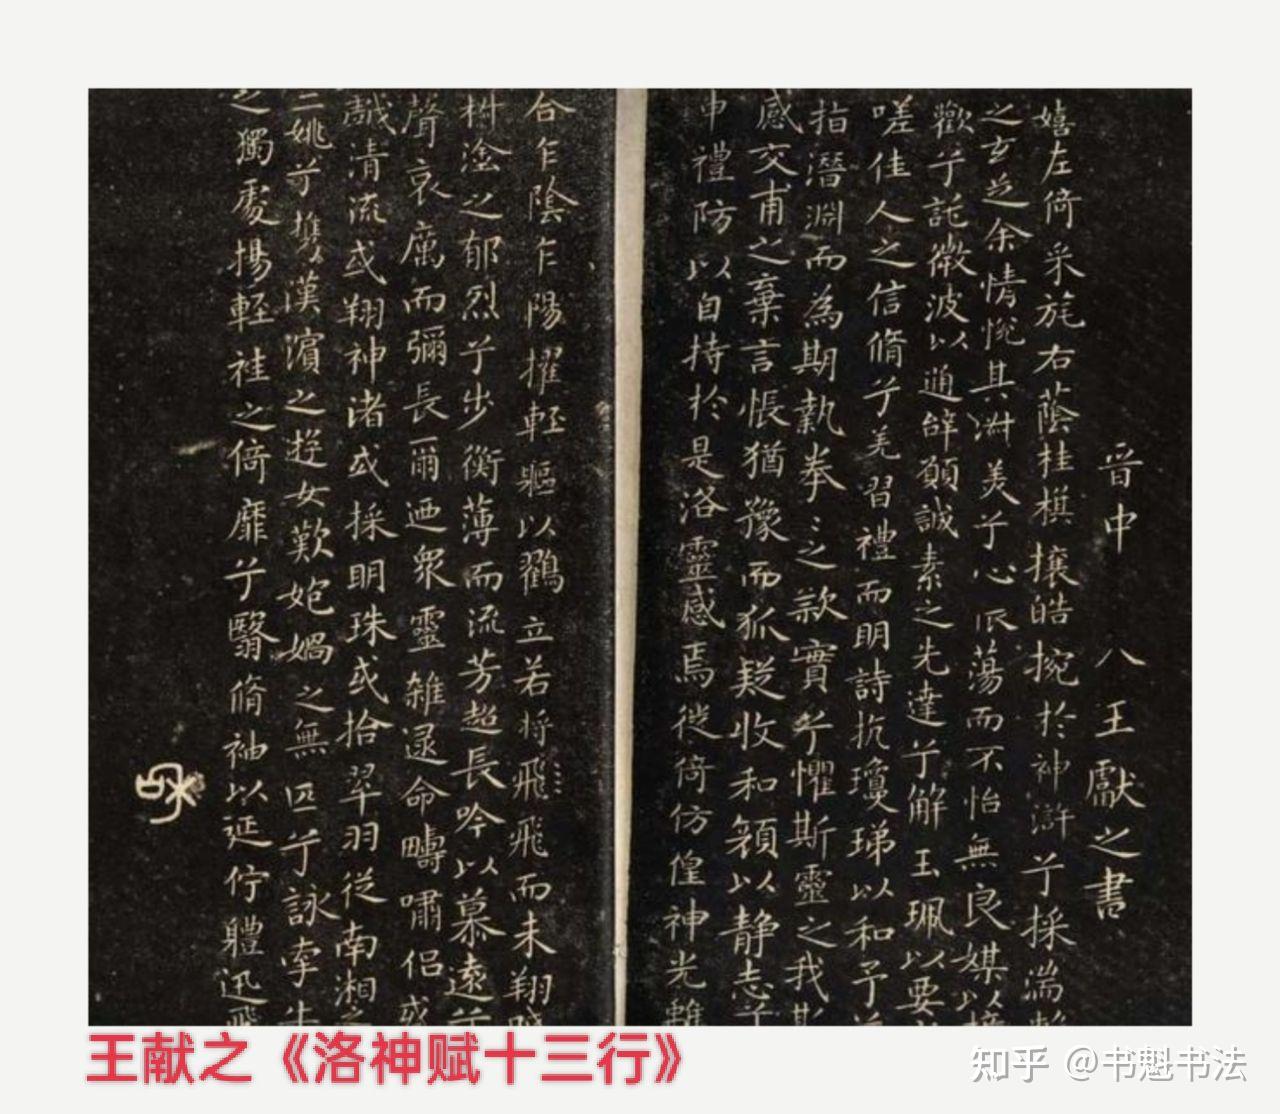 晋中
八王獻之書
嬉左倚采旄右蔭桂棋攘皓捥於神滸兮採湍
之玄芝余情悅其淑美兮心振蕩而不怡無良媒以
歡兮託微波以通辭願誠素之先達兮解玉珮以要
嗟佳人之信脩兮羌習禮而明詩抗瓊珶以和予
指潛淵而為期執拳〻之款實兮懼斯靈之我
感交甫之棄言悵猶豫而狐疑收和顏以静志兮
申禮防以自持於是洛靈感焉徙倚仿偟神光
合乍陰乍陽擢輕軀以鶴立若将飛飛而未翔
塗之郁烈兮步衡薄而流芳超長吟以慕遠兮
聲哀厲而彌長爾迺衆靈雜逯命疇嘯侶或
戲清流或翔神渚或採明珠或拾翠羽從南湘之
二姚兮攜漢濱之遊女歎媧之無匹兮詠牽牛
之獨處揚輕袿之倚靡兮翳脩袖以延佇軆迅飛
王献之《洛神赋十三行》
知乎 @书魁书法